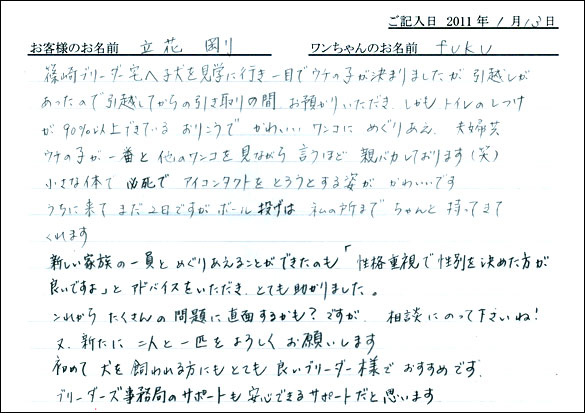 ご記入日 2011 年 1 月 13 日
お客様のお名前 立花 剛 ワンちゃんのお名前 fuku
篠崎ブリーダー宅へ子犬を見学に行き一目でウチの子が決まりましたが 引越しが
あったので引越してからの引き取りの間 お預かりいただき、しかもトイレのしつけ
が 90%以上できている おりこうで かわいい ワンコに めぐりあえ、夫婦共
ウチの子が一番と 他のワンコを見ながら 言うほど 親バカしております(笑)
小さな体で 必死で アイコンタクトを とろうとする姿が かわいいです
うちに来て まだ2日ですが ボール投げは 私の所まで ちゃんと 持ってきて
くれます
新しい家族の一員と めぐりあえることができたのも「性格重視で性別を決めた方が
良いですよ」と アドバイスをいただき、とても助かりました。
これから たくさんの 問題に直面するかも?ですが、相談にのって下さいね!
又、新たに 二人と一匹を よろしく お願いします
初めて 犬を飼われる方にも とても 良いブリーダー様で おすすめです。
ブリーダーズ事務局のサポートも 安心できるサポートだと思います